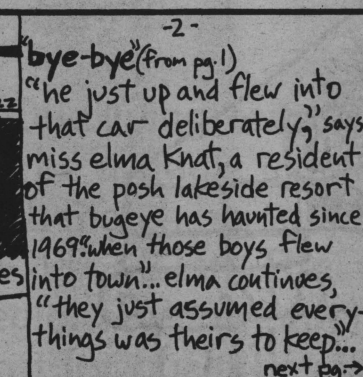 -2-
"bye-bye" (from pg. 1)
"he just up and flew into
that car deliberately," says
miss elma Knat, a resident
of the posh lakeside resort
that bugeye has haunted since
1969. "when those boys flew
into town"... elma continues,
es
"they just assumed every-
things was theirs to keep"...
next pg.→